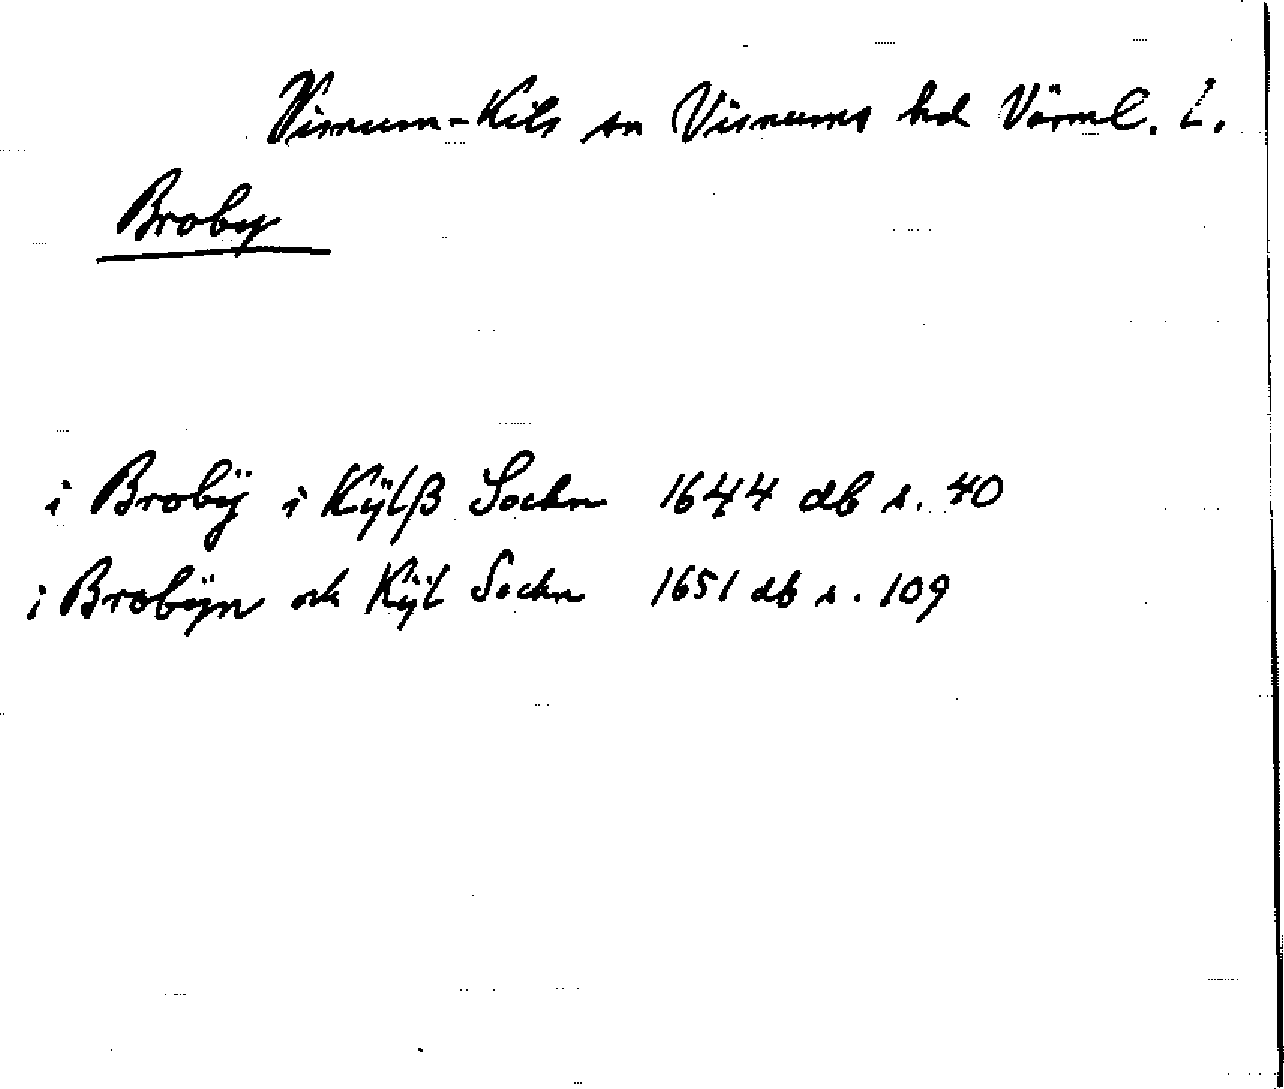 Visnum-Kils sn Visnums hd Värml. L.
Broby
i Brobÿ i Kÿlß Sockn 1644 db s. 40
i Brobÿn och Kÿl Sockn 1651 db s. 109